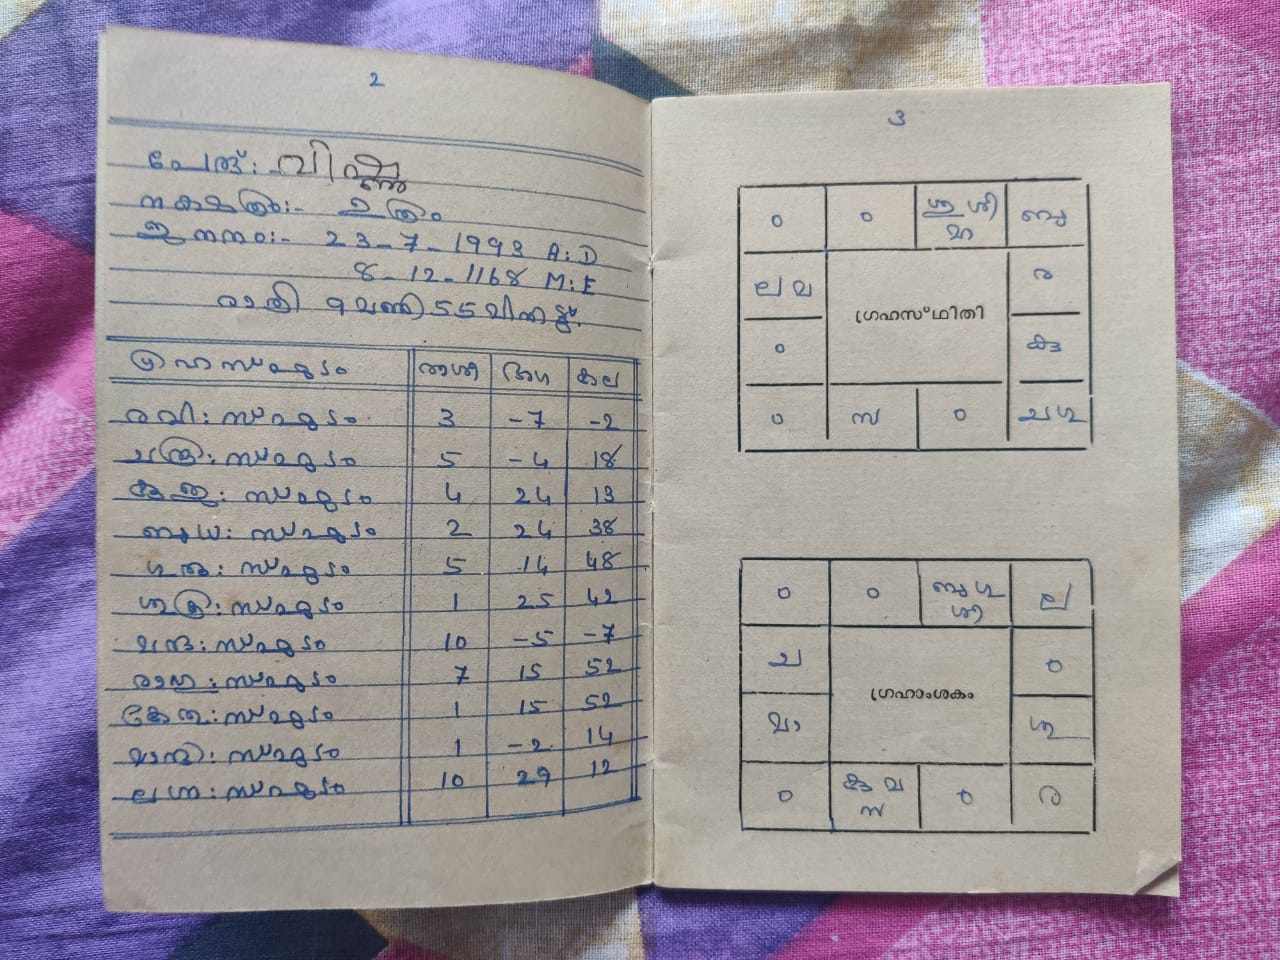 2
പേര്:- വിഷ്ണു
നക്ഷത്രം:- ഉത്രം
ജനനം:- 23-7-1993 A:D
8-12-1168 M:E
രാത്രി 9 മണി 55 മിനിട്ട്.
ഗ്രഹസ്ഫുടം രാശി ഭാഗ കല
രവി: സ്ഫുടം 3 -7 -2
ചന്ദ്ര: സ്ഫുടം 5 -4 18
കുജ: സ്ഫുടം 4 24 13
ബുധ: സ്ഫുടം 2 24 38
ഗുരു: സ്ഫുടം 5 14 48
ശുക്ര: സ്ഫുടം 1 25 42
മന്ദ: സ്ഫുടം 10 -5 -7
രാഹു: സ്ഫുടം 7 15 52
കേതു: സ്ഫുടം 1 15 52
മാന്ദി: സ്ഫുടം 1 -2 14
ലഗ്ന: സ്ഫുടം 10 29 12
3
0 0 ശു ശി ബു
മാ
ല മ ര
ഗ്രഹസ്ഥിതി
0 കു
0 സ 0 ച ഗു
0 0 ബു ഗു ല
ശി
ച 0
ഗ്രഹാംശകം
മാ ശു
0 കു മ 0 ര
സ